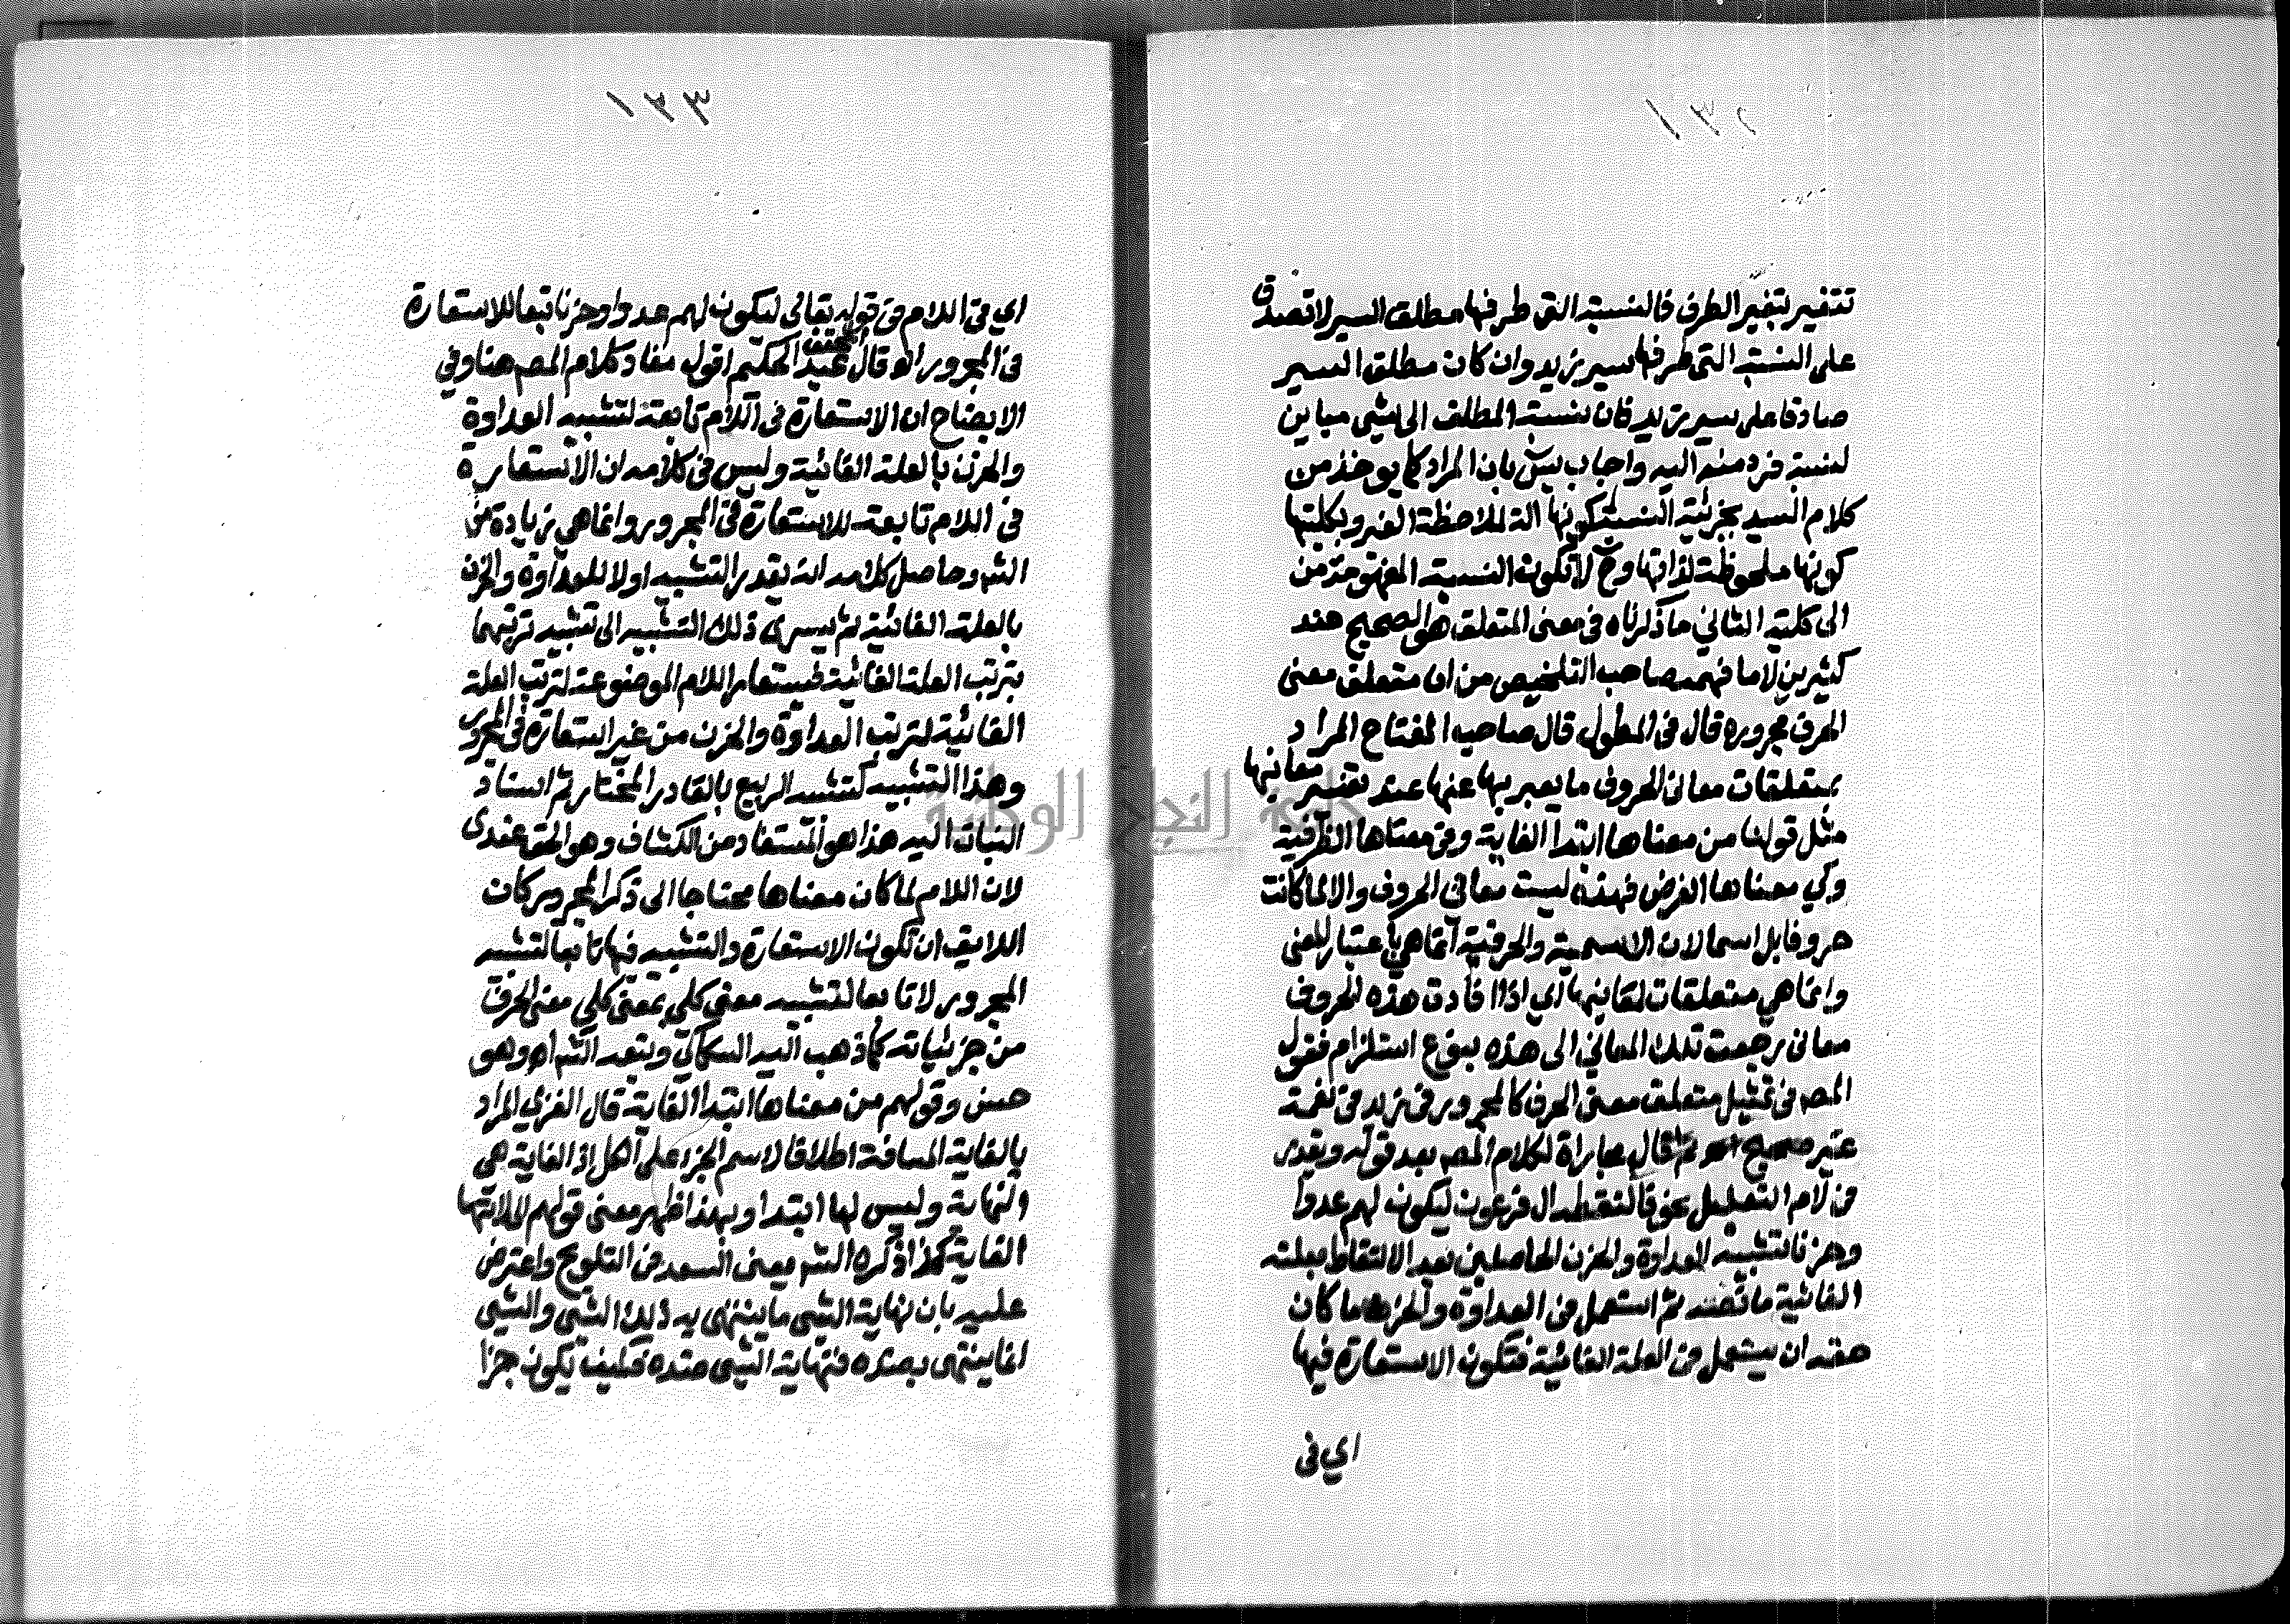 ١٣٢
تتغير لتغير الطرف فالنسبة التي طرفها مطلق السير لا تصدق
على النسبة التي طرفها سير زيد وان كان مطلق السير
صادقا على سير زيد فان نسبة المطلق الى شي مباين
لنسبة فرد منه اليه واجاب يس بان المراد كما يوخذ من
كلام السيد بجزئية النسبة كونها الة لملاحظة الغير وبكليتها
كونها ملحوظة لذاتها وح لا تكون النسبة المفهومة من
الى كلية الثاني ما ذكرناه في معنى المتعلق هو الصحيح عند
كثيرين لا ما فهمه صاحب التلخيص من ان متعلق معنى
الحرف مجروره قال في المطول قال صاحب المفتاح المراد
بمتعلقات معاني الحروف ما يعبر بها عنها عند تفسير معانيها
مثل قولنا من معناها ابتدا الغاية وفي معناها الظرفية
وكي معناها الغرض فهذه ليست معاني الحروف والا لما كانت
حروفا بل اسما لان الاسمية والحرفية انما هي باعتبار المعنى
وانما هي متعلقات لمعانيها اي اذا افادت هذه الحروف
معاني رجعت تلك المعاني الى هذه بنوع استلزام فقول
المص في تمثيل متعلق معنى الحرف كالمجرور في زيد في نعمة
غير صحيح ثم قال مجاراة لكلام المص بعد قوله ويقدر
في لام التعليل نحو فالتقطه ال فرعون ليكون لهم عدوا
وحزنا لتشبيه العداوة والحزن الحاصلين بعد الالتقاط بعلته
الغائية ما نصه ثم استعمل في العداوة والحزن ما كان
حقه ان يستعمل في العلة الغائية فتكون الاستعارة فيها
اي في
١٣٣
اي في اللام في قوله تعالى ليكون لهم عدوا وحزنا تبعا للاستعارة
في المجرور اه قال المحقق عبد الحكيم اقول مفاد كلام المص هنا وفي
الايضاح ان الاستعارة في اللام تابعة لتشبيه العداوة
والحزن بالعلة الغائية وليس في كلامه ان الاستعارة
في اللام تابعة للاستعارة في المجرور وانما هي زيادة من
الش وحاصل كلامه انه يقدر التشبيه اولا للعداوة والحزن
بالعلة الغائية ثم يسري ذلك التشبيه الى تشبيه ترتبهما
بترتب العلة الغائية فتستعار اللام الموضوعة لترتب العلة
الغائية لترتب العداوة والحزن من غير استعارة في المجرور
وهذا التشبيه كتشبيه الربيع بالقادر المختار ثم اسناد
الانبات اليه هذا هو المستفاد من الكشاف وهو الحق عندي
لان اللام لما كان معناها محتاجا الى ذكر المجرور كان
اللايق ان تكون الاستعارة والتشبيه فيها تابعا لتشبيه
المجرور لا تابعا لتشبيه معنى كلي بمعنى كلي معنى الحرف
من جزئياته كما ذهب اليه السكاكي وتبعه الش اه وهو
حسن وقولهم من معناها ابتدا الغاية قال الغزي المراد
بالغاية المسافة اطلاقا لاسم الجزء على الكل اذ الغاية هي
النهاية وليس لها ابتدا وبهذا ظهر معنى قولهم الى لانتها
الغاية كهذا ذكره الش يعني السعد في التلويح واعترض
عليه بان نهاية الشي ما ينتهى به ذلك الشي والشي
انما ينتهى بضده فنهاية الشي ضده فكيف يكون جزا
جامعة النجاح الوطنية